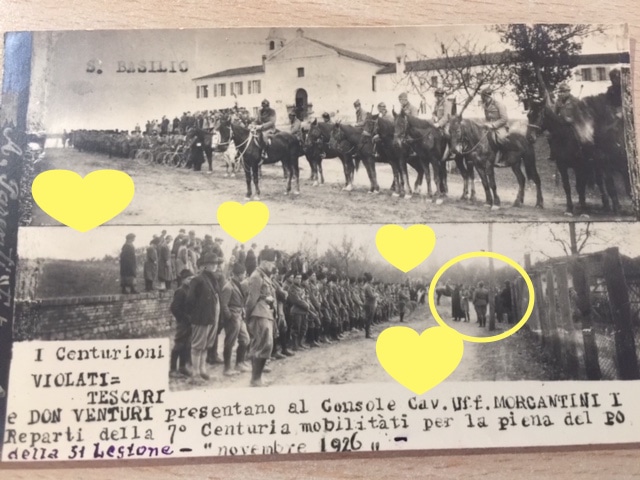 S. BASILIO
I Centurioni
VIOLATI=
TESCARI
e DON VENTURI presentano al Console Cav. Uff. MORCANTINI I
Reparti della 7° Centuria mobilitàti per la piena del PO
della 51 Legione — "novembre 1926" —